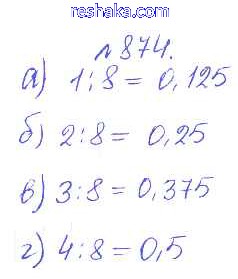 reshaka.com
№874.
а) 1:8 = 0,125
б) 2:8 = 0,25
в) 3:8 = 0,375
г) 4:8 = 0,5